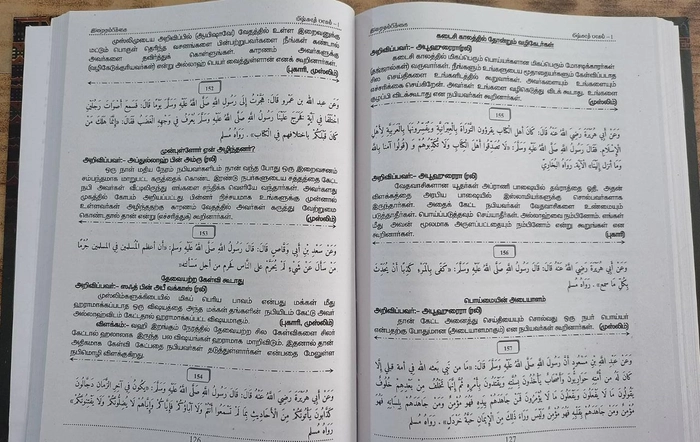 இறைநம்பிக்கை
மிஷ்காத் பாகம் – 1
முஸ்லிமுடைய அறிவிப்பில் (ஆயிஷாவே) வேதத்தில் உள்ள இறைவனுக்கு
மட்டும் பொருள் தெரிந்த வசனங்களை பின்பற்றுபவர்களை நீங்கள் கண்டால்
அவர்களை தவிர்த்துக் கொள்ளுங்கள். காரணம் அவர்களுக்கு
(வழிகேடுக்குரியவர்கள்) என்று அல்லாஹ் பெயர் வைத்துள்ளான் எனக் கூறினார்கள்.
(புகாரி, முஸ்லிம்)
152
وَعَن عبد الله بن عَمْرو قَالَ: هَجَّرْتُ إِلَى رَسُولِ اللَّهِ صَلَّى اللَّهُ عَلَيْهِ وَسَلَّمَ يَوْمًا قَالَ: فَسَمِعَ أَصْوَاتَ رَجُلَيْنِ
اخْتَلَفَا فِي آيَةٍ فَخَرَجَ عَلَيْنَا رَسُولُ اللَّهِ صَلَّى اللَّهُ عَلَيْهِ وَسَلَّمَ يُعْرَفُ فِي وَجْهِهِ الْغَضَبُ فَقَالَ: «إِنَّمَا هَلَكَ مَنْ
كَانَ قَبْلَكُمْ بِاخْتِلَافِهِمْ فِي الْكِتَابِ». رَوَاهُ مُسلم
முன்புள்ளோர் ஏன் அழிந்தனர்?
அறிவிப்பவர்:- அப்துல்லாஹ் பின் அம்ரு (ரலி)
ஒரு நாள் மதிய நேரம் நபியவர்களிடம் நான் வந்த போது ஒரு இறைவசனம்
சம்பந்தமாக மாறுபட்ட கருத்தைக் கொண்ட இரண்டு நபர்களுடைய சத்தத்தை கேட்ட
நபி அவர்கள் வீட்டிலிருந்து எங்களை சந்திக்க வெளியே வந்தார்கள். அவர்களது
முகத்தில் கோபம் அறியப்பட்டது பின்னர் நிச்சயமாக உங்களுக்கு முன்னுள்ள
உள்ளவர்கள் அழிந்ததற்கு காரணம் வேதத்தில் அவர்கள் கருத்து வேற்றுமை
கொண்டதால் தான் என்று (எச்சரித்துக்) கூறினார்கள்.
(முஸ்லிம்)
153
وَعَن سعد بن أبي وَقاص قَالَ: قَالَ رَسُولُ اللَّهِ صَلَّى اللَّهُ عَلَيْهِ وَسَلَّمَ: «أَن أعظم الْمُسلمين فِي الْمُسلمين جرما
من سَأَلَ عَن شَيْءٍ لَمْ يُحَرَّمْ عَلَى النَّاسِ فَحُرِّمَ مِنْ أَجْلِ مَسْأَلَتِهِ»
தேவையற்ற கேள்வி கூடாது
அறிவிப்பவர்:- ஸஃத் பின் அபீ வக்காஸ் (ரலி)
முஸ்லிம்களுக்கிடையில் மிகப் பெரிய பாவம் என்பது மக்கள் மீது
ஹராமாக்கப்படாத ஒரு விஷயத்தை அந்த மக்கள் தங்களின் நபியிடம் கேட்டு அவர்
அல்லாஹ்விடம் கேட்டதால் ஹராமாக்கப்பட்ட விஷயமாகும்.
(புகாரி, முஸ்லிம்)
விளக்கம்:- வஹி இறங்கும் நேரத்தில் தேவையற்ற சில கேள்விகளை சிலர்
கேட்டால் ஹலாலாக இருந்த பல விஷயங்கள் ஹராமாக மாறிவிடும். இதனால் தான்
அதிகமாக கேள்வி கேட்பதை நபியவர்கள் தடுத்துள்ளார்கள் என்பதை மேலுள்ள
நபிமொழி விளக்குகிறது.
154
وَعَن أبي هُرَيْرَة رَضِيَ اللَّهُ عَنْهُ قَالَ: قَالَ رَسُولُ اللَّهِ صَلَّى اللَّهُ عَلَيْهِ وَسَلَّمَ: «يَكُونُ فِي آخِرِ الزَّمَانِ دَجَّالُونَ
كَذَّابُونَ يَأْتُونَكُمْ مِنَ الْأَحَادِيثِ بِمَا لَمْ تَسْمَعُوا أَنْتُمْ وَلَا آبَاؤُكُمْ فَإِيَّاكُمْ وَإِيَّاهُمْ لَا يُضِلُّونَكُمْ وَلَا يَفْتِنُونَكُمْ»
رَوَاهُ مُسلم
126
இறைநம்பிக்கை
மிஷ்காத் பாகம் – 1
கடைசி காலத்தில் தோன்றும் வழிகேடர்கள்
அறிவிப்பவர்:- அபூஹுரைரா(ரலி)
கடைசி காலத்தில் மிகப்பெரும் பொய்யர்களான மிகப்பெரும் மோசடிக்காரர்கள்
(தஜ்ஜால்கள்) வருவார்கள். நீங்களும் உங்களுடைய மூதாதையர்களும் கேள்விப்படாத
சில செய்திகளை உங்களிடத்தில் கூறுவார்கள். அவர்களையும் உங்களையும்
எச்சரிக்கை செய்கிறேன். அவர்கள் உங்களை வழிகெடுத்து விடக் கூடாது. உங்களை
குழப்பி விடக்கூடாது என நபியவர்கள் கூறினார்கள்.
(முஸ்லிம்)
155
وَعَن أبي هُرَيْرَة رَضِي الله عَنهُ قَالَ: كَانَ أَهْلُ الْكِتَابِ يَقْرَءُونَ التَّوْرَاةَ بِالْعِبْرَانِيَّةِ وَيُفَسِّرُونَهَا بِالْعَرَبِيَّةِ لِأَهْلِ
الْإِسْلَامِ. فَقَالَ رَسُولُ اللَّهِ صَلَّى اللَّهُ عَلَيْهِ وَسَلَّمَ: «لَا تُصَدِّقُوا أَهْلَ الْكِتَابِ وَلَا تُكَذِّبُوهُمْ وَ (قُولُوا آمنا بِاللَّه
وَمَا أنزل إِلَيْنَا» الْآيَة. رَوَاهُ البُخَارِيّ
அறிவிப்பவர்:- அபூஹுரைரா (ரலி)
வேதவாசிகளான யூதர்கள் அப்ரானி பாஷையில் தவ்ராத்தை ஓதி, அதன்
விளக்கத்தை அரபிய பாஷையில் இஸ்லாமியர்களுக்கு சொல்பவர்களாக
இருந்தார்கள். அதைக் கேட்ட நபியவர்கள் வேதவாசிகளை உண்மையும்
படுத்தாதீர்கள். பொய்ப்படுத்தவும் செய்யாதீர்கள். அல்லாஹ்வை நம்பினோம். எங்கள்
மீது அவன் மூலமாக அருளப்பட்டதையும் நம்பினோம் என்று கூறுங்கள் என
கூறினார்கள்.
(புகாரி)
156
وَعَن أبي هُرَيْرَة رَضِيَ اللَّهُ عَنْهُ قَالَ: قَالَ رَسُولُ اللَّهِ صَلَّى اللَّهُ عَلَيْهِ وَسَلَّمَ: «كَفَى بِالْمَرْءِ كَذِبًا أَنْ يُحَدِّثَ
بِكُلِّ مَا سَمِعَ». رَوَاهُ مُسلم
பொய்மையின் அடையாளம்
அறிவிப்பவர்:- அபூஹுரைரா (ரலி)
தான் கேட்ட அனைத்து செய்தியையும் சொல்வது ஒரு நபர் பொய்யர்
என்பதற்கு போதுமான (அடையாளமாகும்) என நபியவர்கள் கூறினார்கள். (முஸ்லிம்)
157
وَعَن عبد الله بن مَسْعُود أَن رَسُولَ اللَّهِ صَلَّى اللَّهُ عَلَيْهِ وَسَلَّمَ قَالَ: «مَا من نَبِي بَعثه الله فِي أمة قبلي إِلَّا
كَانَ لَهُ من أُمَّتِهِ حَوَارِيُّونَ وَأَصْحَابٌ يَأْخُذُونَ بِسُنَّتِهِ وَيَقْتَدُونَ بِأَمْرِهِ ثُمَّ إِنَّهَا تَخْلُفُ مِنْ بَعْدِهِمْ خُلُوفٌ
يَقُولُونَ مَا لَا يَفْعَلُونَ وَيَفْعَلُونَ مَا لَا يُؤْمَرُونَ فَمَنْ جَاهَدَهُمْ بِيَدِهِ فَهُوَ مُؤْمِنٌ وَمَنْ جَاهَدَهُمْ بِلِسَانِهِ فَهُوَ
مُؤْمِنٌ وَمَنْ جَاهَدَهُمْ بِقَلْبِهِ فَهُوَ مُؤْمِنٌ وَلَيْسَ وَرَاءَ ذَلِكَ مِنَ الْإِيمَانِ حَبَّةُ خَرْدَلٍ». رَوَاهُ مُسلم
127